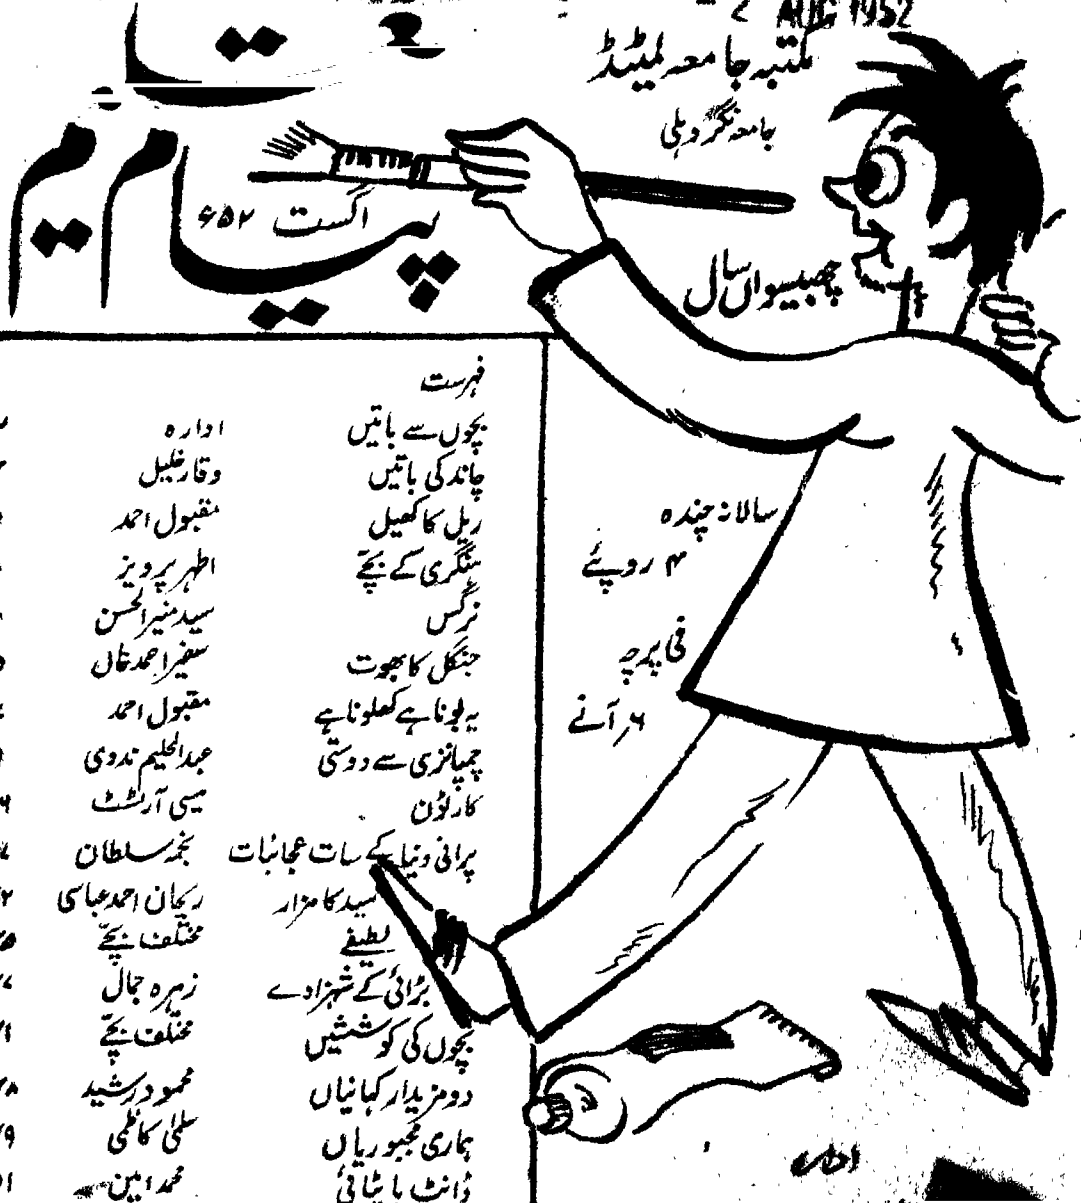 2 AUG 1952
مکتبہ جامعہ لمیٹڈ
جامعہ نگر دہلی
پیام
اگست ۵۲ء
چھبیسواں سال
فہرست
بچوں سے باتیں ادارہ
چاند کی باتیں وقار خلیل
ریل کا کھیل مقبول احمد
منگری کے بچے اطہر پرویز
نرگس سید منیر الحسن
جنگل کا بھوت سفیر احمد خاں
یہ لونا ہے کھلونا ہے مقبول احمد
چمپانزی سے دوستی عبدالحلیم ندوی
کارٹون میسی آرٹسٹ
پرانی دنیا کے سات عجائبات نجمہ سلطان
سید کا مزار ریحان احمد عباسی
لطیفے مختلف بچے
بڑائی کے شہزادے زہرہ جمال
بچوں کی کوششیں مختلف بچے
دو مزیدار کہانیاں محمود رشید
ہماری مجبوریاں سلمیٰ کاظمی
محمد امین
سالانہ چندہ
۴ روپئے
فی پرچہ
۶ر آنے